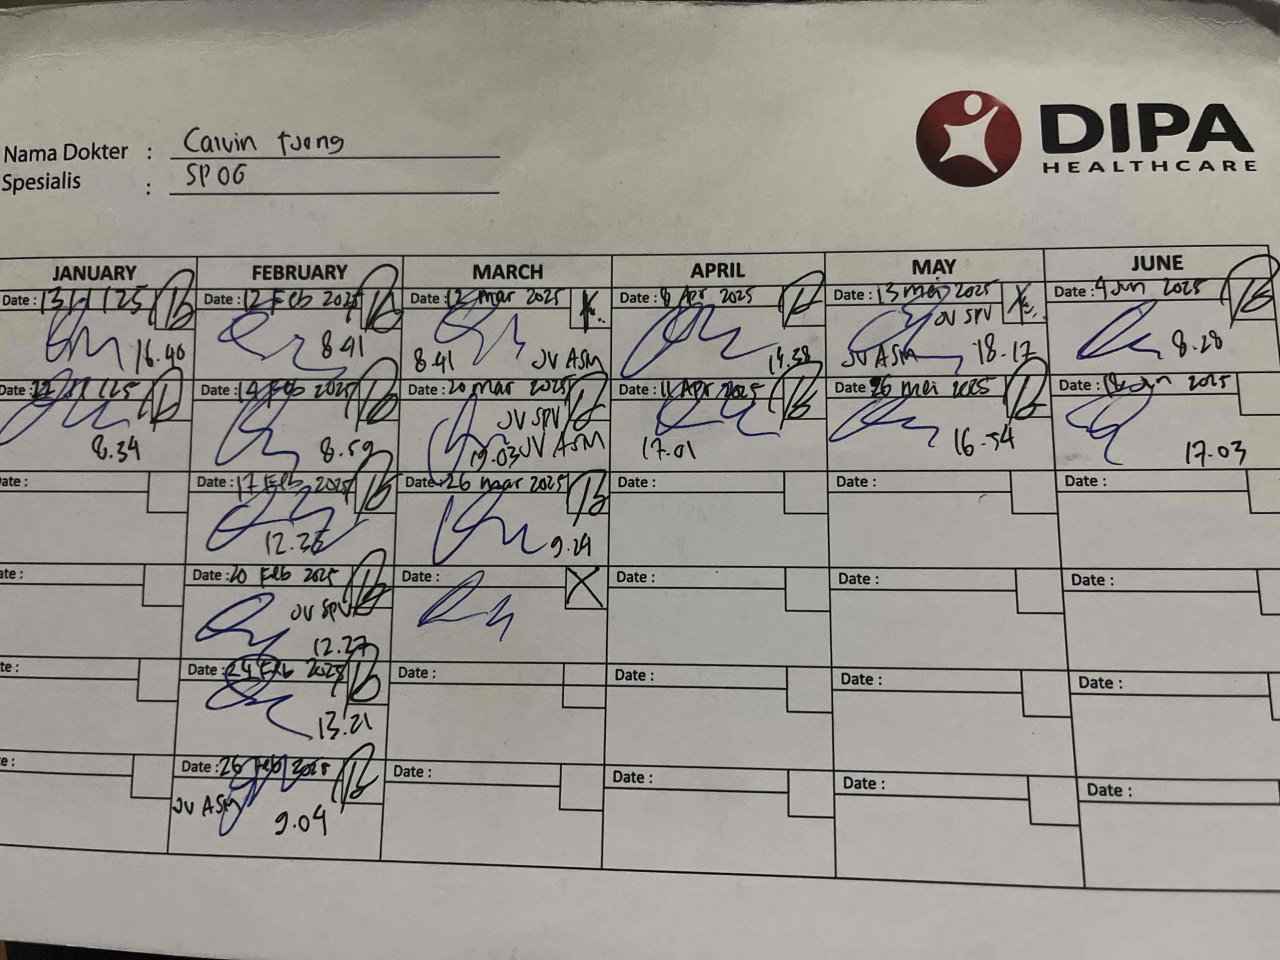 DIPA
HEALTHCARE
Nama Dokter : Calvin tjong
Spesialis : SPOG
JANUARY FEBRUARY MARCH APRIL MAY JUNE
Date : 13/1/25 Date : 12 Feb 2025 Date : 12 mar 2025 Date : 8 Apr 2025 Date : 13 mei 2025 Date : 4 Jun 2025
16.40 8.41 8.41 JV ASM 14.38 JV SPV JV ASM 18.17 8.28
Date : /1/25 Date : 14 Feb 2025 Date : 20 mar 2025 Date : 11 Apr 2025 Date 26 mei 2025 Date : Jun 2025
8.34 8.59 JV SPV 19.03 JV ASM 17.01 16.54 17.03
ate : Date : 17 Feb 2025 Date : 26 mar 2025 Date : Date : Date :
12.36 9.29
ate : Date : 20 Feb 2025 Date : Date : Date : Date :
JV SPV
12.27
te : Date : 24 Feb 2025 Date : Date : Date : Date :
13.21
e : Date : 26 Feb 2025 Date : Date : Date : Date :
JV ASM 9.04